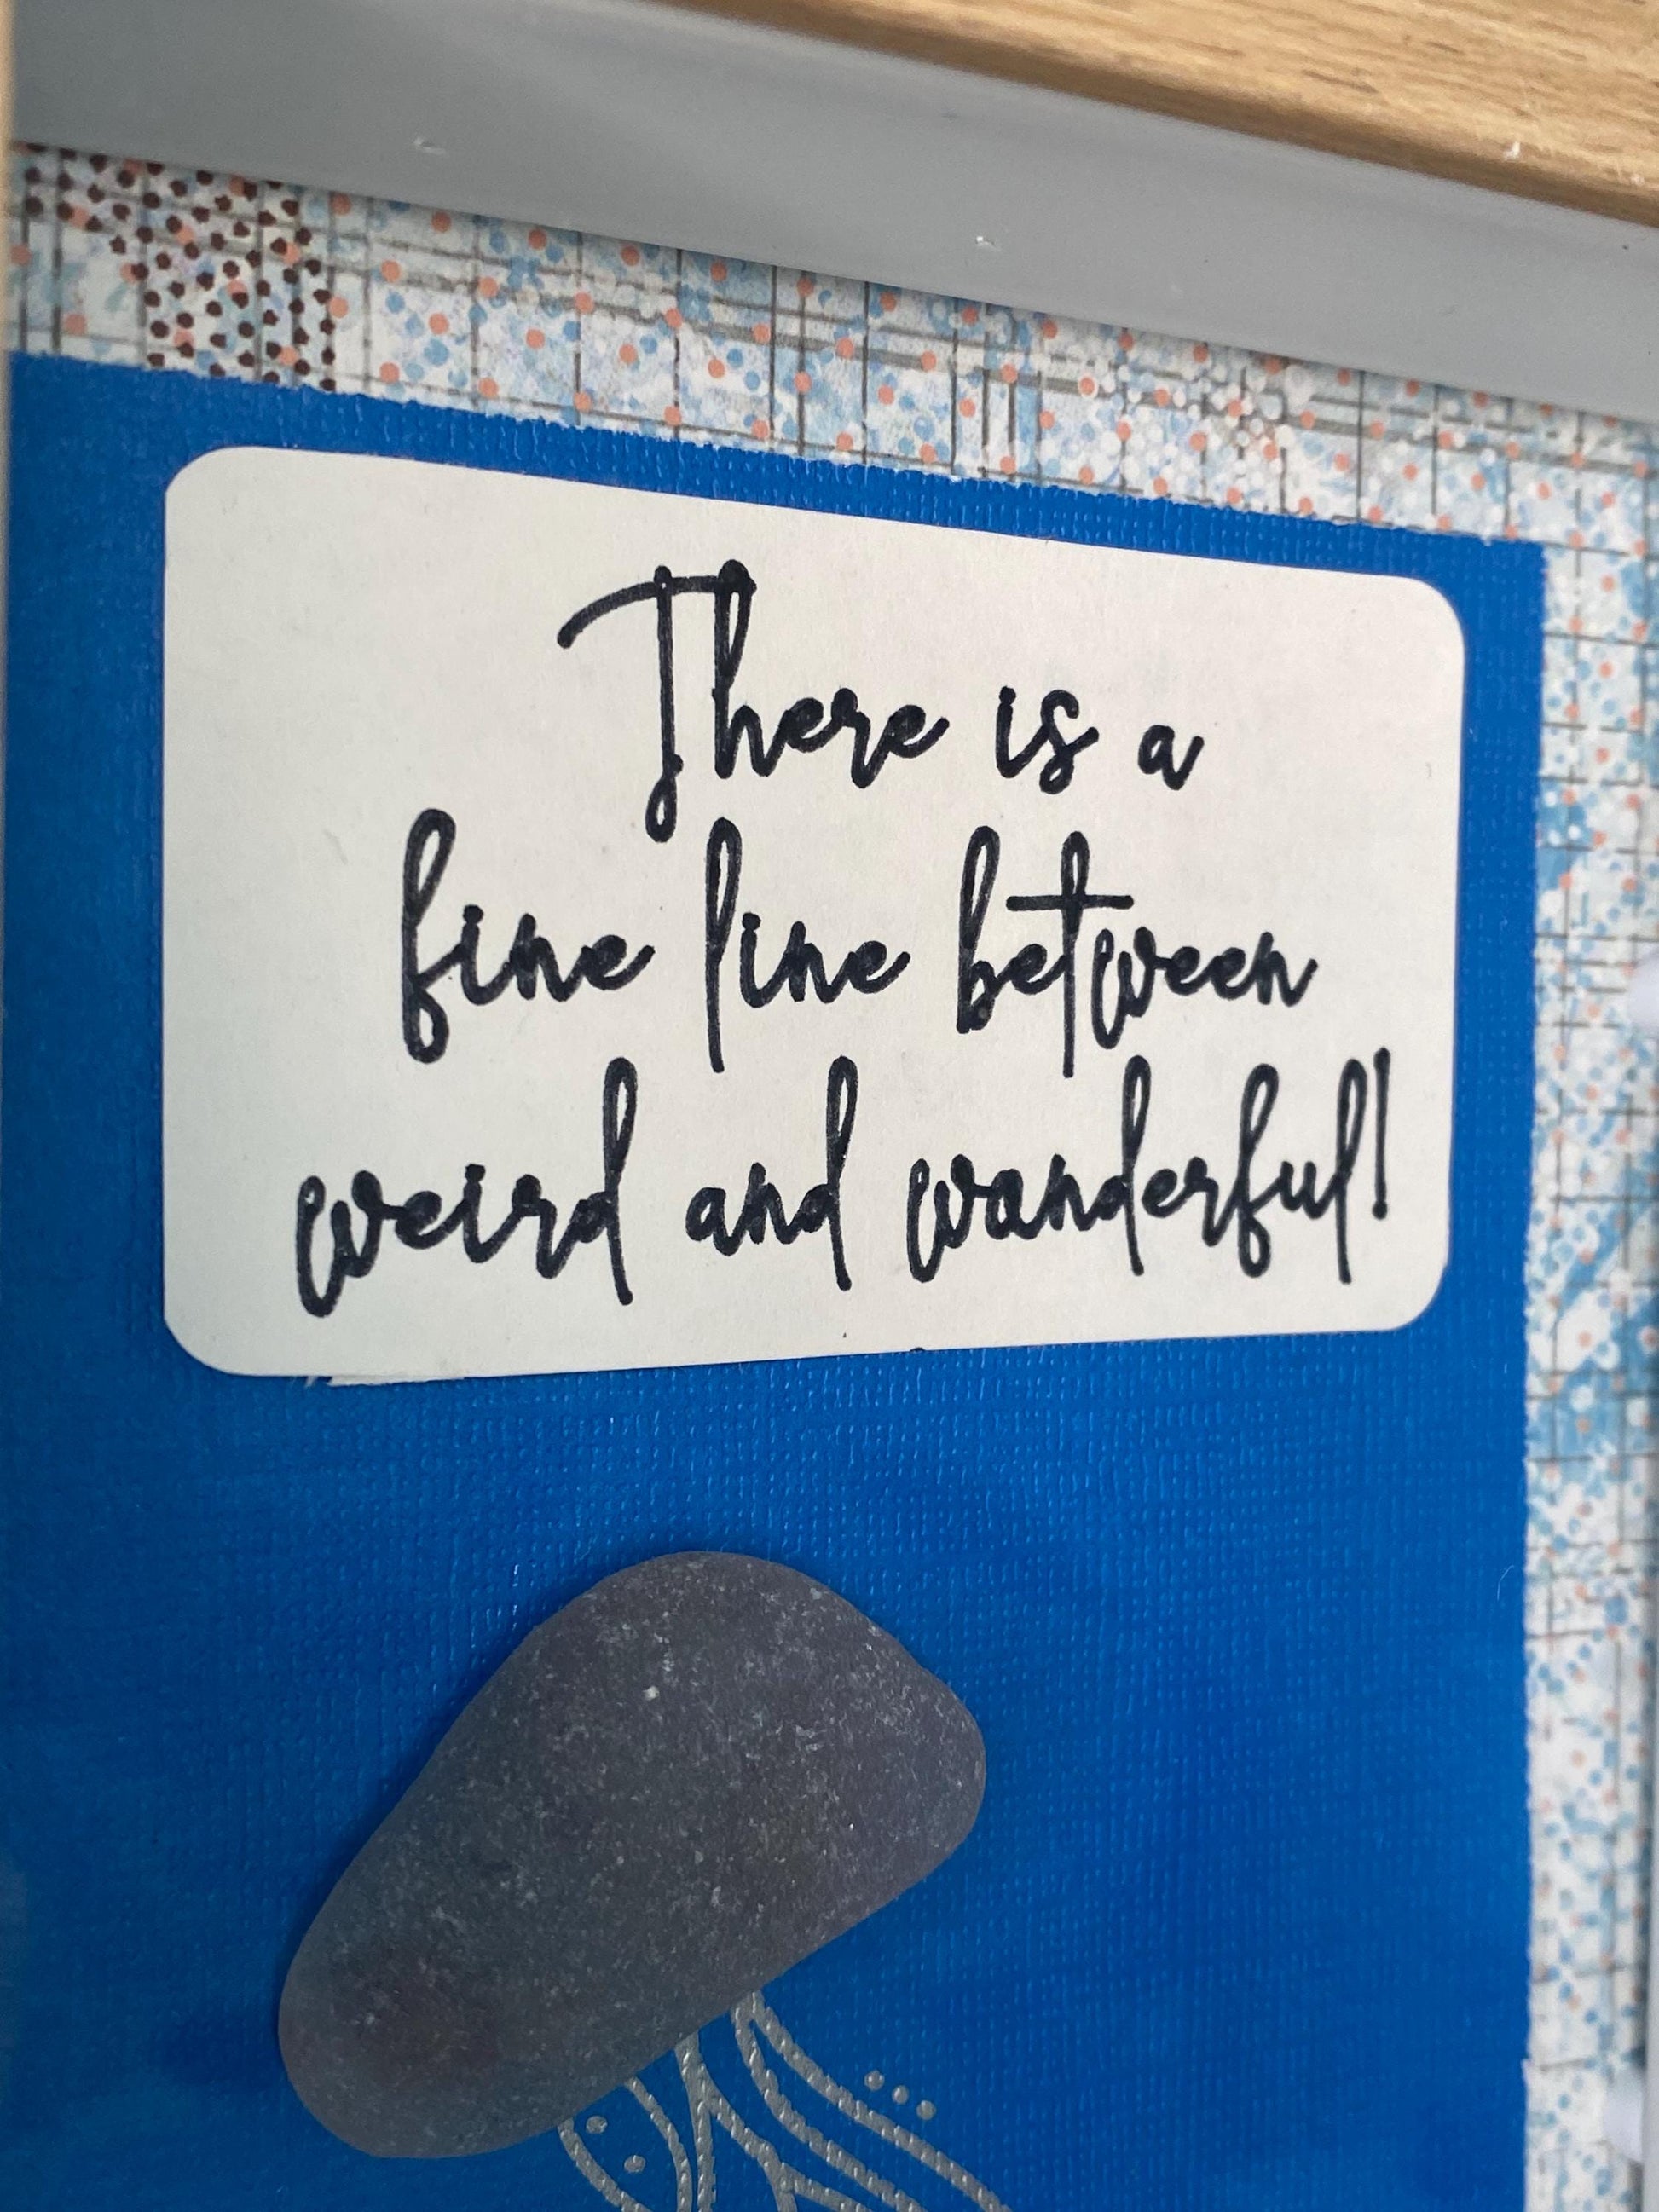 There is a
fine line between
weird and wanderful!